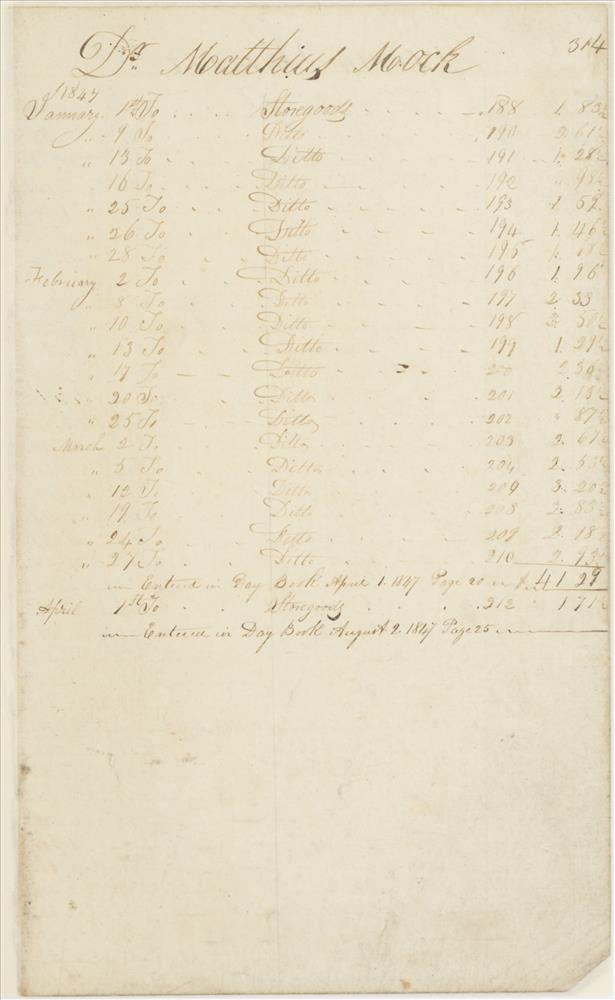 Dr. Matthias Mock 314
1847
January 1st To Storegoods 188 1. 83½
" 9 To Ditto 190 2. 61½
" 13 To Ditto 191 1. 28½
" 16 To Ditto 192 " 98½
" 25 To Ditto 193 1. 59
" 26 To Ditto 194 1. 46½
" 28 To Ditto 195 1.
February 2 To Ditto 196 1. 96
" 8 To Ditto 197 2. 33
" 10 To Ditto 198 3. 50½
" 13 To Ditto 199 1. 29½
" 17 To Ditto 200 2.
" 20 To Ditto 201 2. 13½
" 25 To Ditto 202 " 87½
March 2 To Ditto 203 2. 67½
" 5 To Ditto 204 2. 53½
" 12 To Ditto 209 3. 20½
" 19 To Ditto 208 3. 83½
" 24 To Ditto 209 2. 18½
" 27 To Ditto 210 2. 93½
Entered in Day Book April 1. 1847 Page 20 $ 41 29
April 1st To Storegoods 212 1 71½
Entered in Day Book August 2. 1847 Page 25